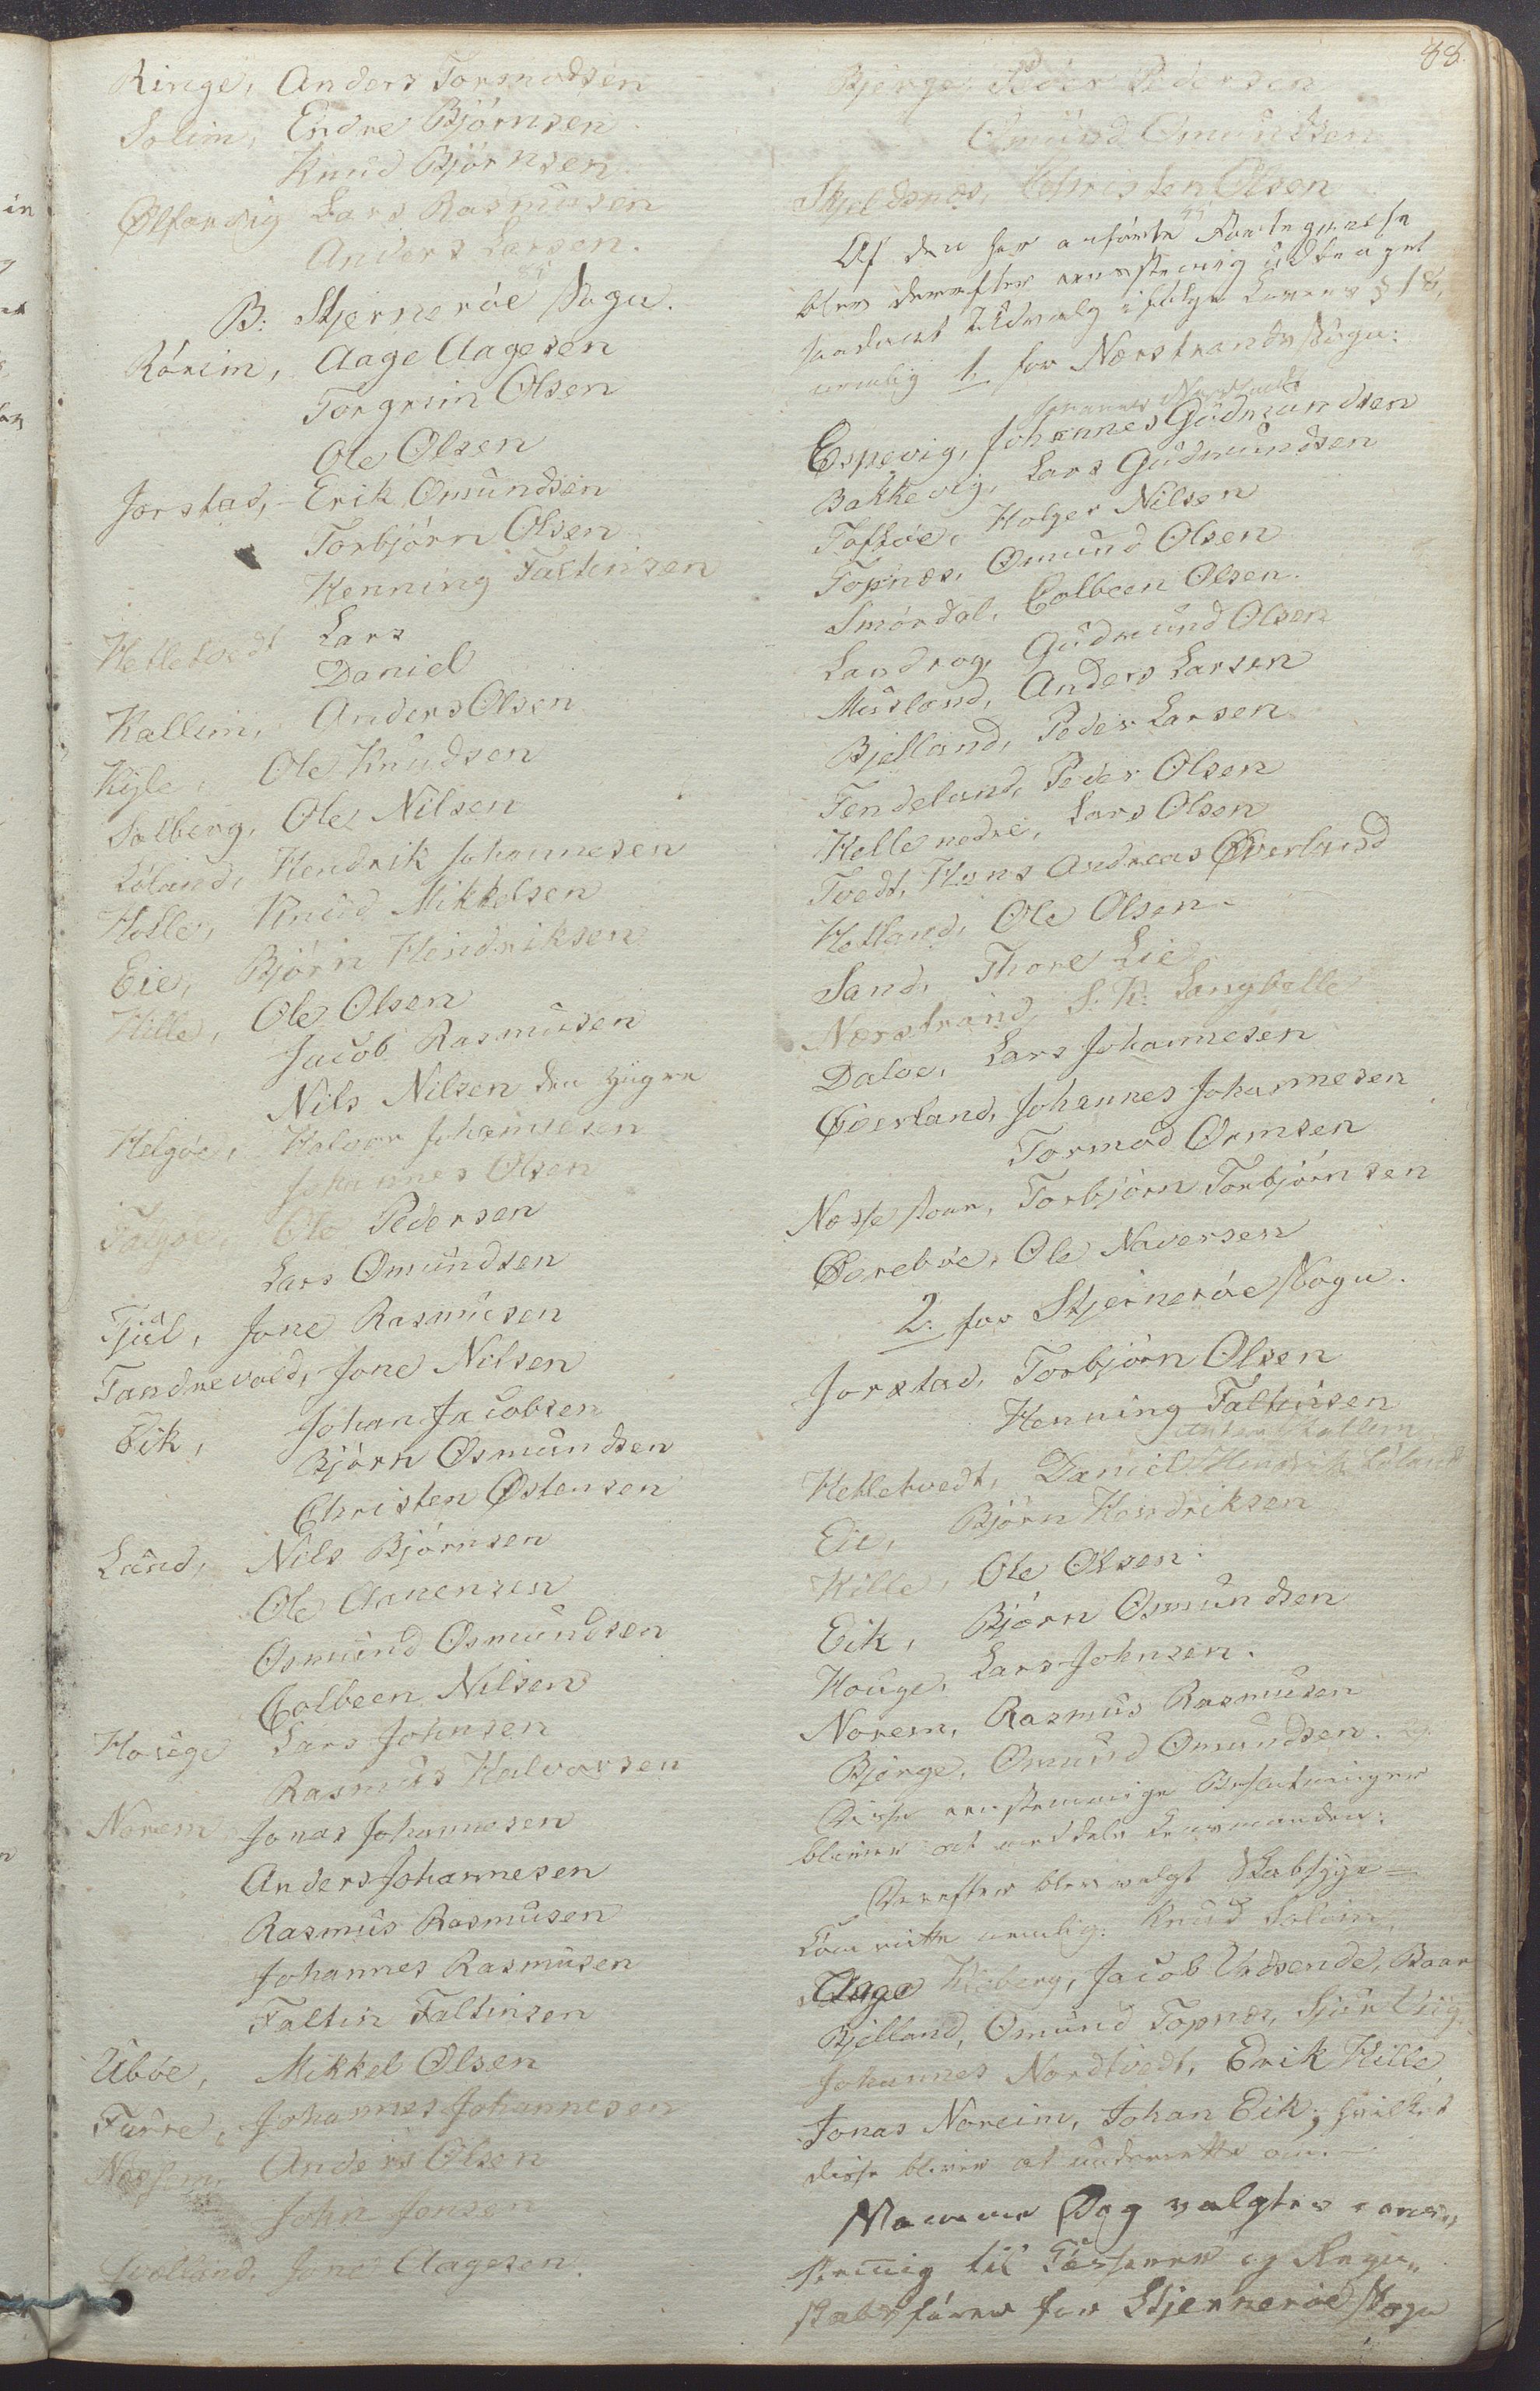 88.
Ringe, Anders Tormodsen
Solim, Endre Björnsen
Knud Björnsen
Ølfarvig Lars Rasmusen
Anders Larsen.
B: Stjerneróe Sogn.
Róreim, Aage Aagesen
Torgrim Olsen
Ole Olsen
Jorstad, Erik Omundsen
Torbjörn Olsen
Henning Faltinsen
Hetletvedt Lars
Daniel
Kallem, Anders Olsen
Kyle, Ole Knudsen
Solberg, Ole Nilsen
Lóland, Hendrik Johannesen
Helle, Knud Mikkelsen
Eie, Björn Hendriksen
Hille, Ole Olsen
Jacob Rasmusen
Nils Nilsen den yngre
Helgóe, Halvor Johannesen
Johannes Olsen
Ole Pedersen
Lars Omundsen
Tjul, Jone Rasmusen
Tandrevold, Jone Nilsen
Eik, Johan Jacobsen
Björn Osmundsen
Christen Østensen
Lund, Nils Björnsen
Ole Aanensen
Osmund Osmundsen
Colbeen Nilsen
Houge Lars Johnsen
Rasmus Halvorsen
Norem Jonas Johannesen
Anders Johannesen
Rasmus Rasmusen
Johannes Rasmusen
Faltin Faltinsen
Ubóe, Mikkel Olsen
Furre, Johannes Johannesen
Anders Olsen
John Jonsen
Jone Aagesen.
Bjerge, Peder Pedersen
Omund Omundsen
Skjeldsnes, Christen Olsen
Af den her anförte Fortegnelse
blev derefter eenstemig udtaget
saadant Udvalg ifölge Lovens § 18,
nemlig 1. for Nærstrands Sogn:
Johannes Nordtvedt
Espevig, Johannes Gudmundsen
Bakkevig, Lars Gudmundsen
Toftóe, Holger Nilsen
Topnes, Omund Olsen
Smórdal, Colbeen Olsen.
Landrog, Gudmund Olsen
Musland, Anders Larsen
Bjelland, Peder Larsen
Tendeland, Peder Olsen
Helle nedre, Lars Olsen
Tvedt, Hans Andreas Øverland
Hetland, Ole Olsen.
Sand, Thore Lie
Nærstrand, S. K. Langballe
Daloe, Lars Johannesen
Øverland, Johannes Johannesen
Tormod Ormsen
Torbjörn Torbjörnsen
Øvrebóe, Ole Naversen
2. for Stjerneróe Sogn.
Jorstad, Torbjörn Olsen
Henning Faltinsen
Kallem
Hetletvedt, Daniel Hendrik Lóland
Eie, Björn Hendriksen
Hille, Ole Olsen.
Eik, Björn Osmundsen
Houge, Lars Johnsen.
Norem, Rasmus Rasmusen
Bjerge, Omund Omundsen.
Disse eenstemmige Beslutninger
bliver at meddele Lensmanden.
Derefter blev valgt Skabsyge-
Committe nemlig: Knud Soleim,
Aage Kioberg, Jacob Vadsende, Baar
Bjelland, Omund Topnes, Sjur Viig,
Johannes Nordtvedt, Erik Hille
Jonas Noreim, Johan Eik; hvilket
disse bliver at underrette om.—
Samme Dag valgtes eens-
stemig til Casserer og Regn-
skabsförer for Stjerneróe Sogn